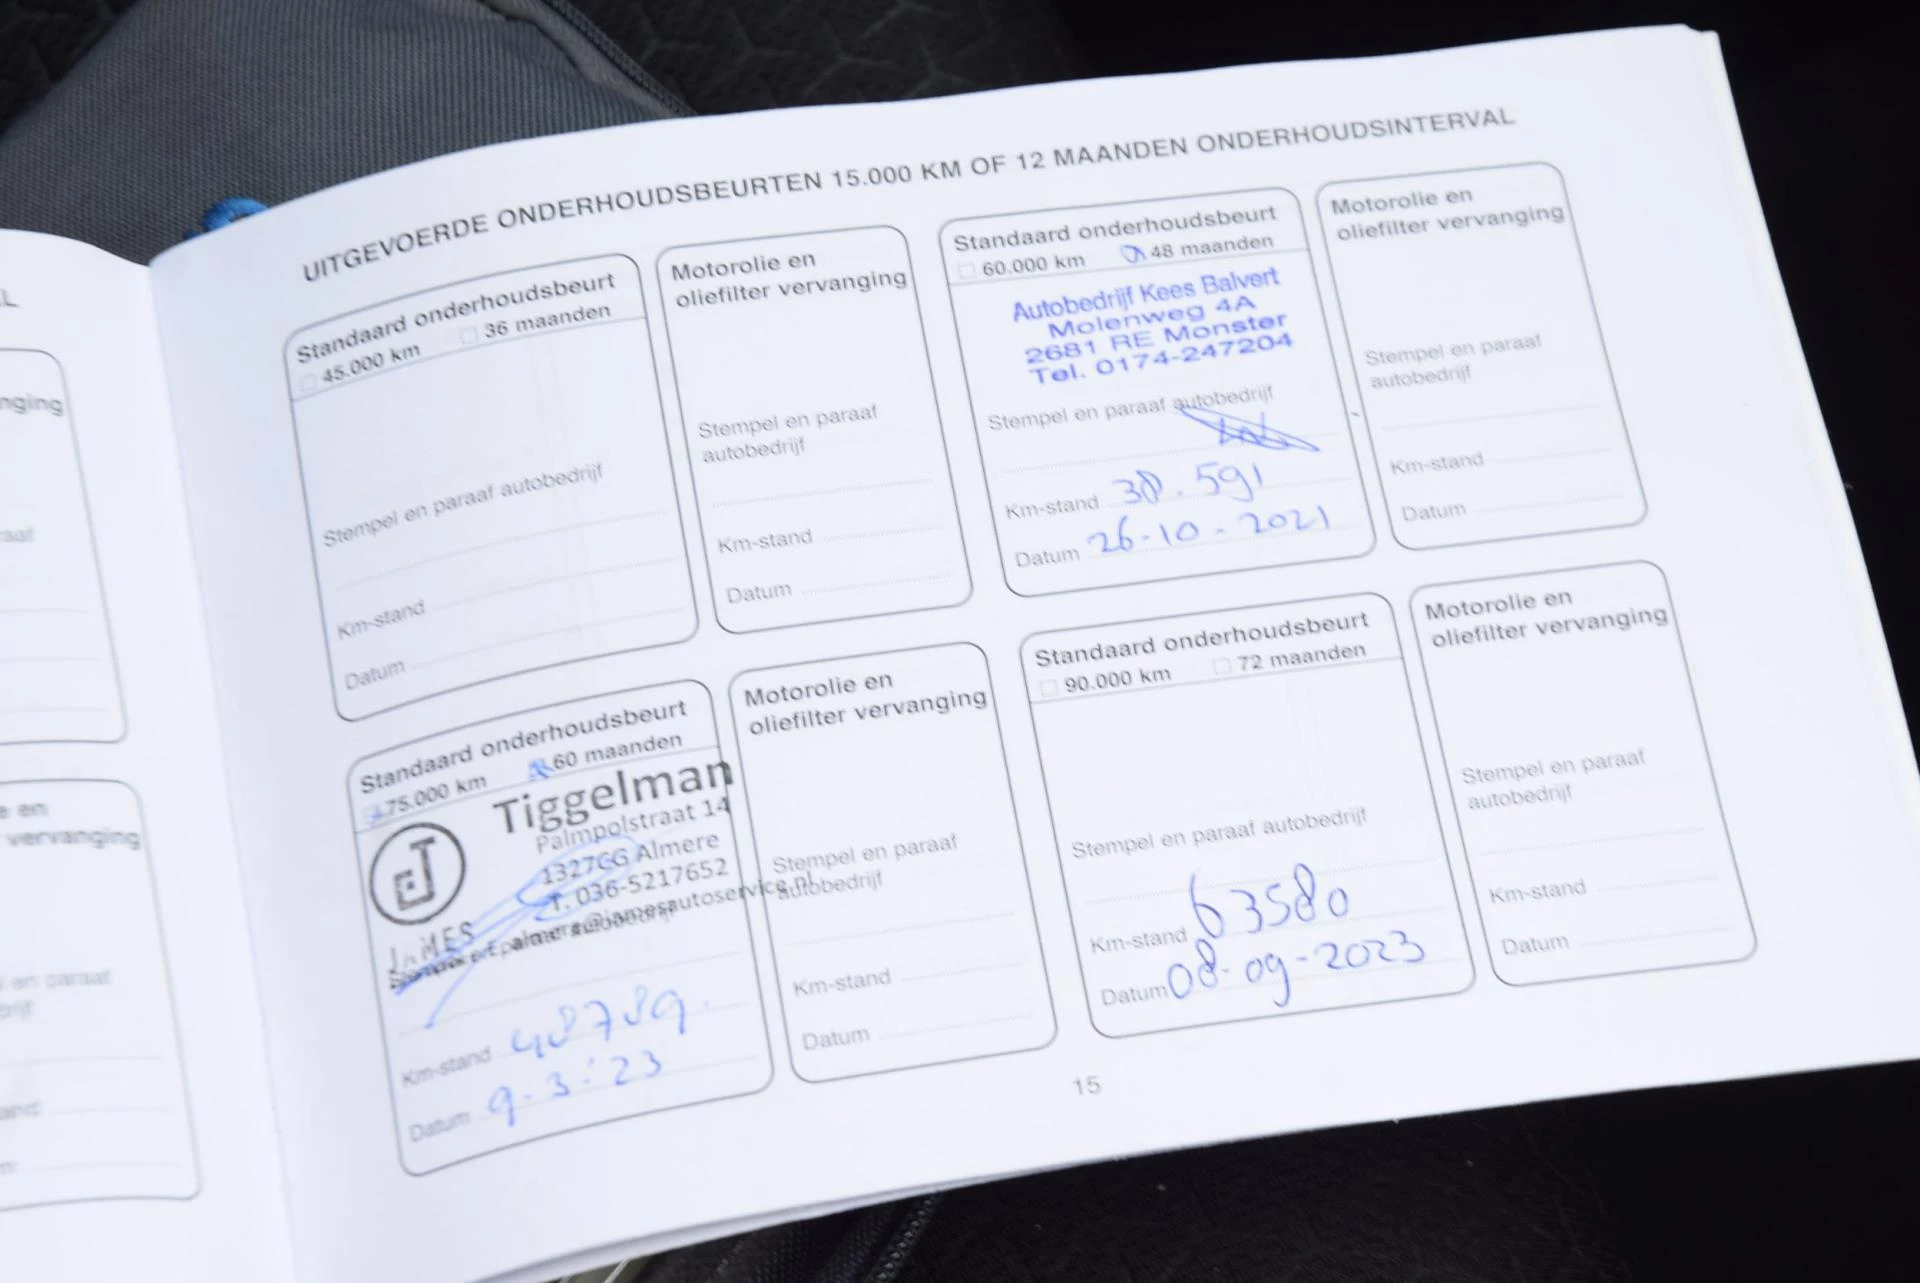 UITGEVOERDE ONDERHOUDSBEURTEN 15.000 KM OF 12 MAANDEN ONDERHOUDSINTERVAL
Standaard onderhoudsbeurt
45.000 km 36 maanden
Stempel en paraaf autobedrijf
Km-stand
Datum
Motorolie en
oliefilter vervanging
Stempel en paraaf
autobedrijf
Km-stand
Datum
Standaard onderhoudsbeurt
60.000 km 48 maanden
Autobedrijf Kees Balvert
Molenweg 4A
2681 RE Monster
Tel. 0174-247204
Stempel en paraaf autobedrijf
Km-stand 38.591
Datum 26-10-2021
Motorolie en
oliefilter vervanging
Stempel en paraaf
autobedrijf
Km-stand
Datum
Standaard onderhoudsbeurt
75.000 km 60 maanden
Tiggelman
Palmpolstraat 14
1327CG Almere
T. 036-5217652
E. almere@jamesautoservice.nl
JAMES
Km-stand 48789.
Datum 9-3-'23
Motorolie en
oliefilter vervanging
Stempel en paraaf
autobedrijf
Km-stand
Datum
Standaard onderhoudsbeurt
90.000 km 72 maanden
Stempel en paraaf autobedrijf
Km-stand 63580
Datum 08-09-2023
Motorolie en
oliefilter vervanging
Stempel en paraaf
autobedrijf
Km-stand
Datum
15
L
nging
raaf
e en
vervanging
en paraaf